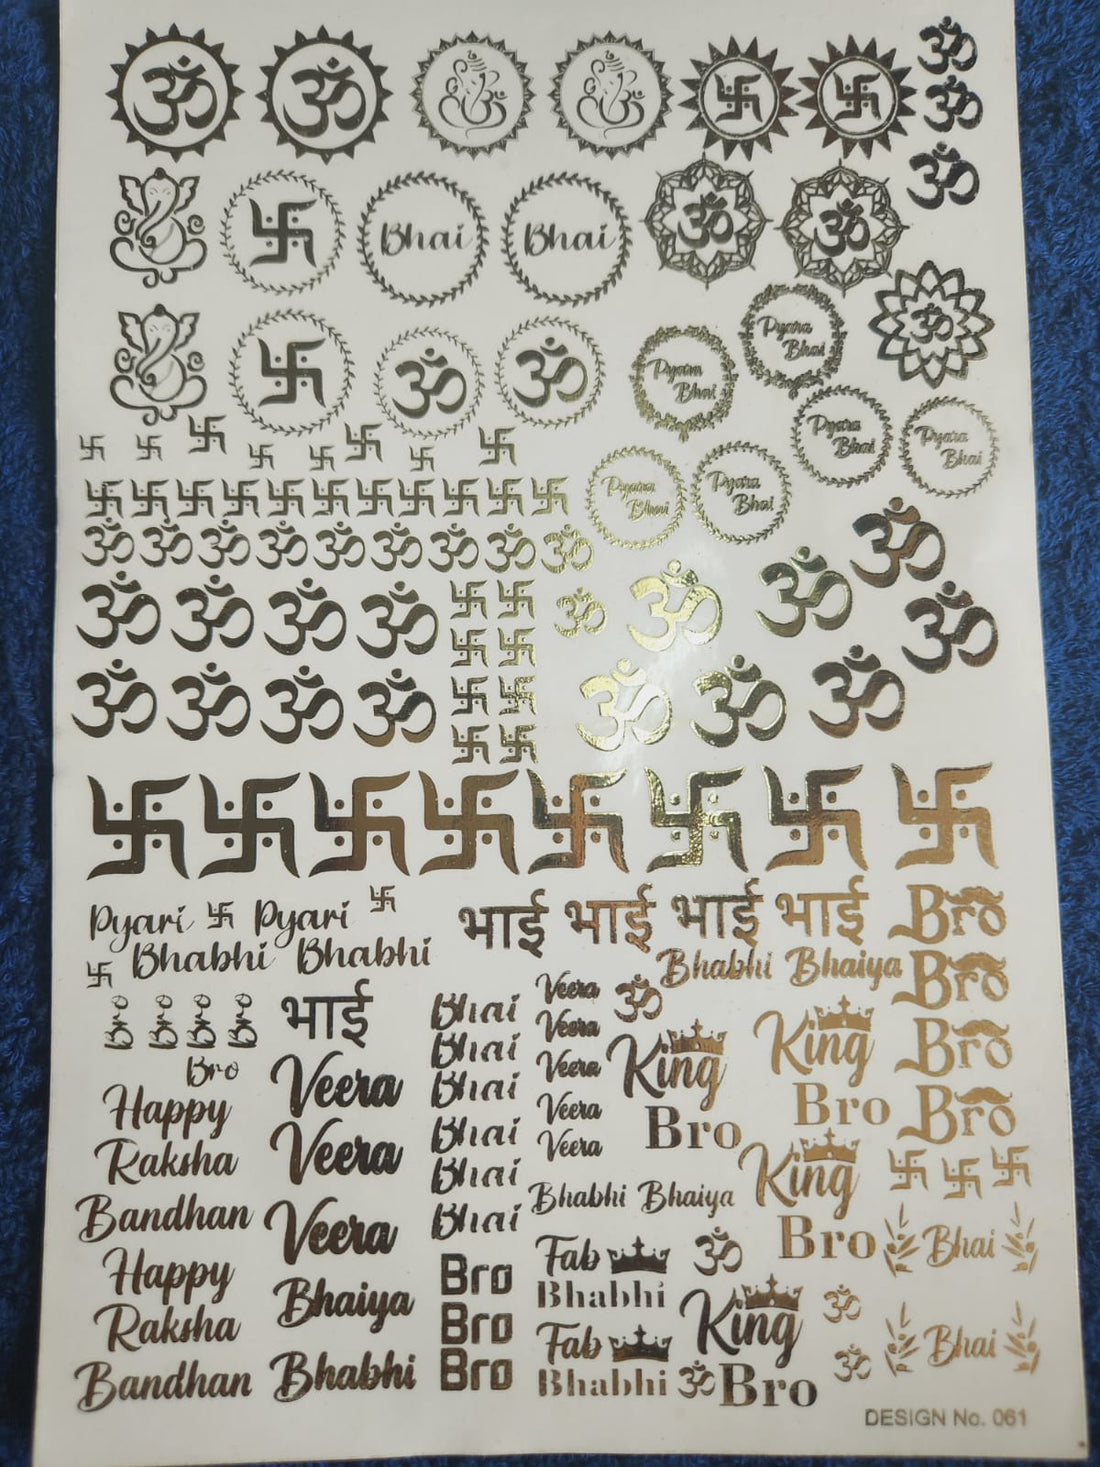 Bhai
Bhai
Pyara
Bhai
Pyara
Bhai
Pyara
Bhai
Pyara
Bhai
Pyara
Bhai
Pyara
Bhai
Pyari Pyari
Bhabhi Bhabhi
भाई भाई भाई भाई
Bro
Bhabhi Bhaiya
Bro
Bro
Bro
Bro Bro Bro Bro
Bro
भाई
Happy
Raksha
Bandhan
Happy
Raksha
Bandhan
Veera
Veera
Veera
Bhaiya
Bhabhi
Bhai
Bhai
Bhai
Bhai
Bhai
Bhai
Bro
Bro
Bro
Veera
Veera
Veera
Veera
Veera
Bhabhi Bhaiya
Fab
Bhabhi
Fab
Bhabhi
King
Bro
King
Bro
King
Bro
King
Bro
Bhai
Bhai
DESIGN No. 061